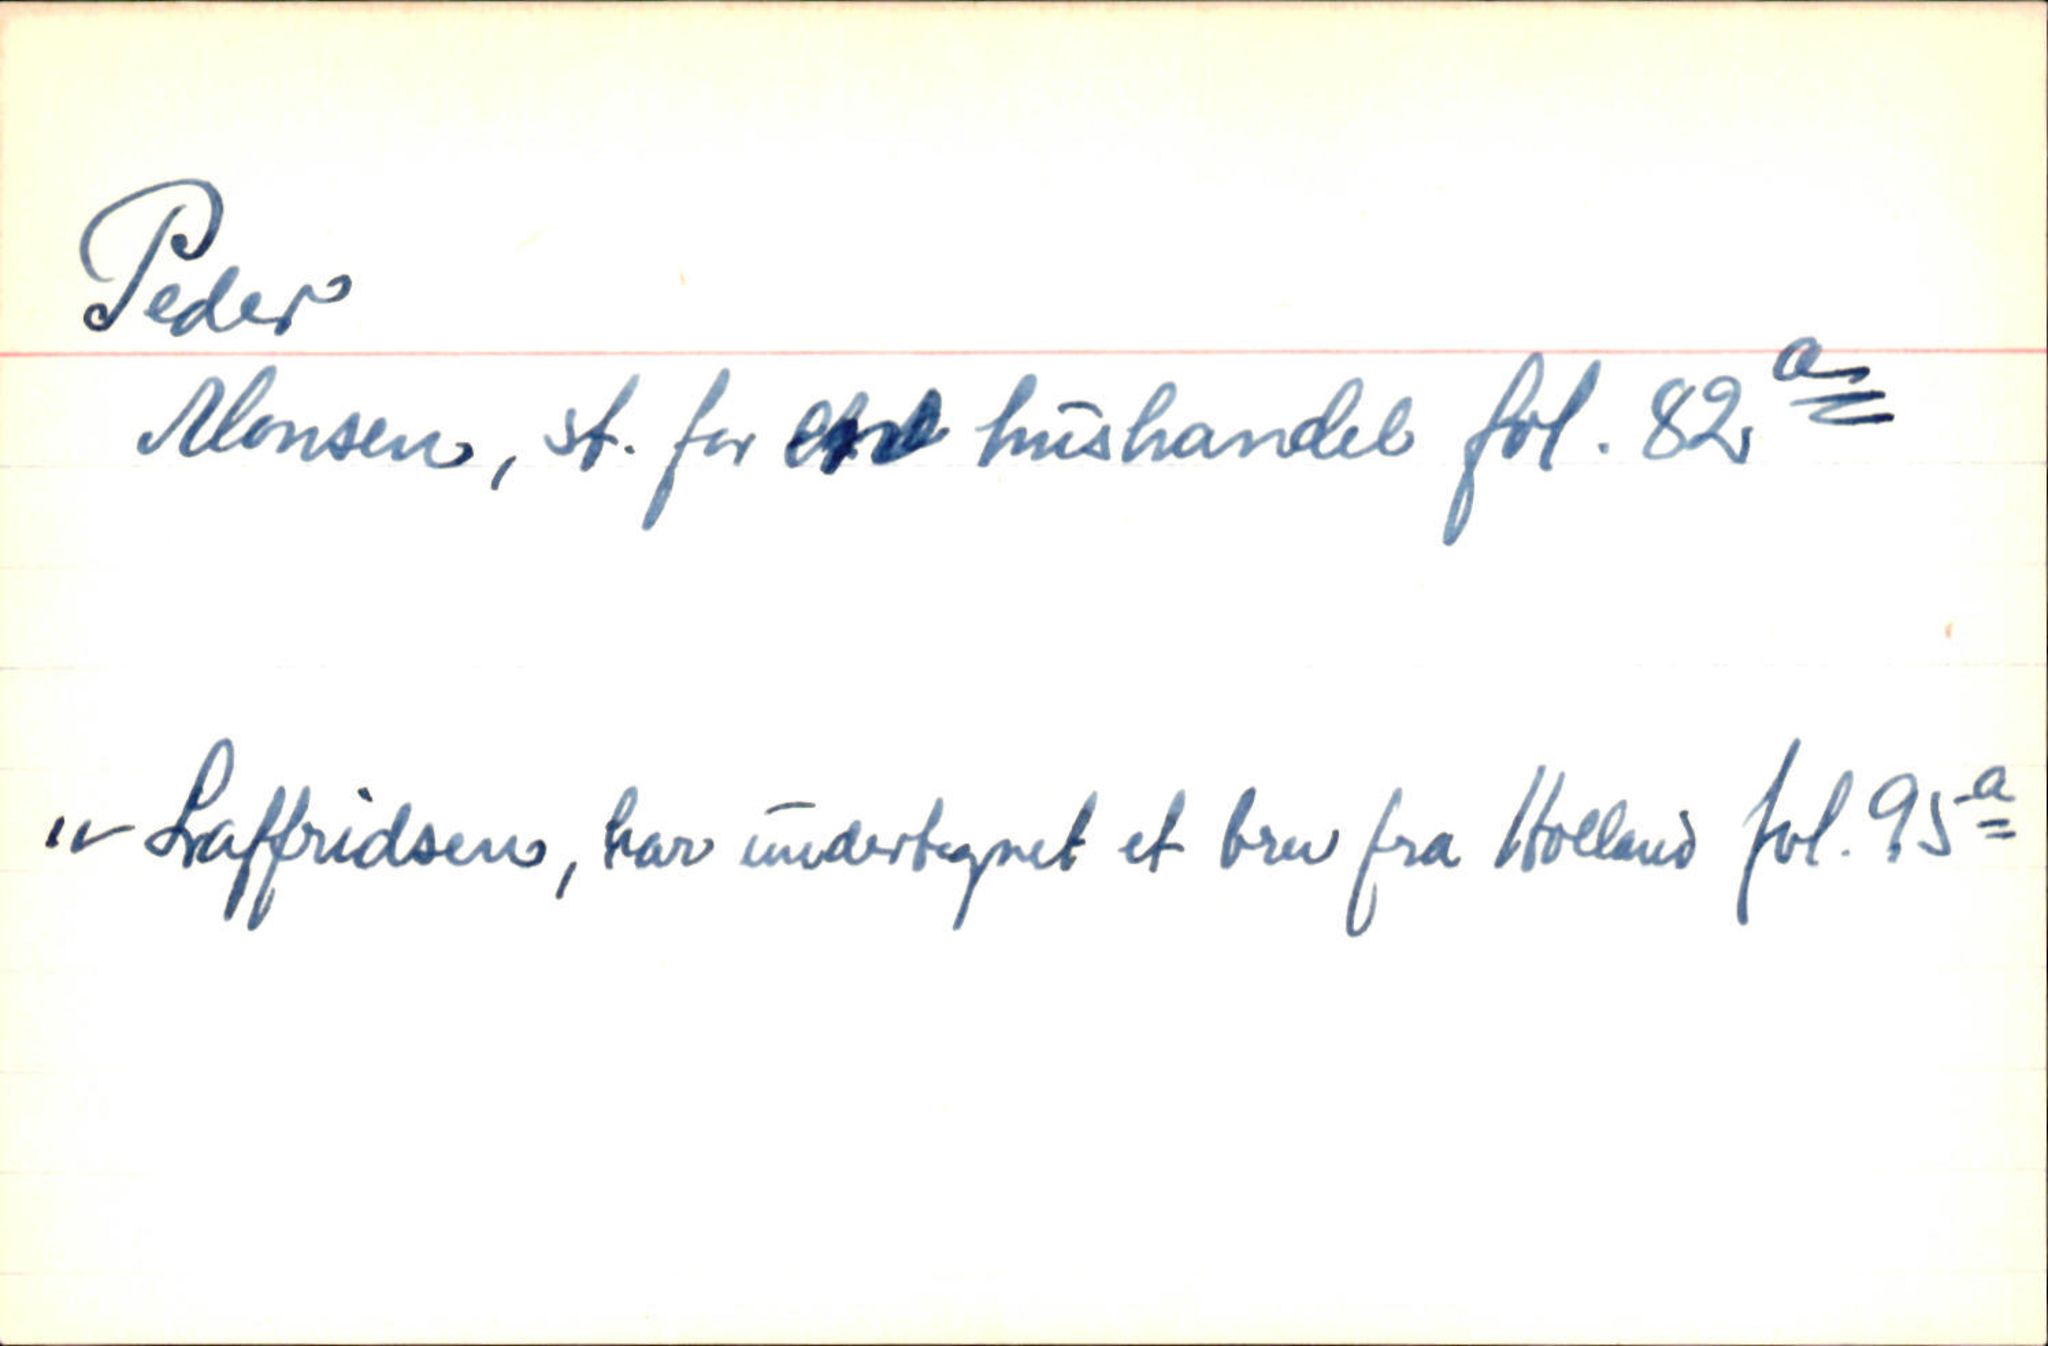 Peder
Monsen, st. for hushandel fol. 82ᵃ
"– Laffridsen, har undertegnet et brev fra Holland fol. 95ᵃ